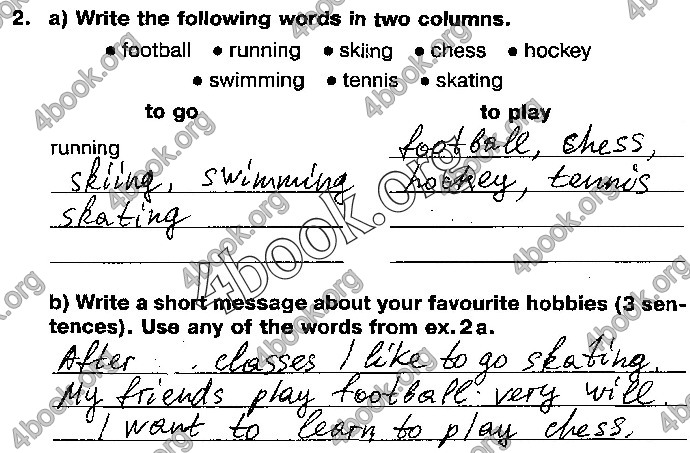 2. a) Write the following words in two columns.
• football • running • skiing • chess • hockey
• swimming • tennis • skating
to go to play
running football, chess,
skiing, swimming hockey, tennis
skating
b) Write a short message about your favourite hobbies (3 sen-
tences). Use any of the words from ex. 2a.
After classes I like to go skating.
My friends play football very will.
I want to learn to play chess.
4book.org